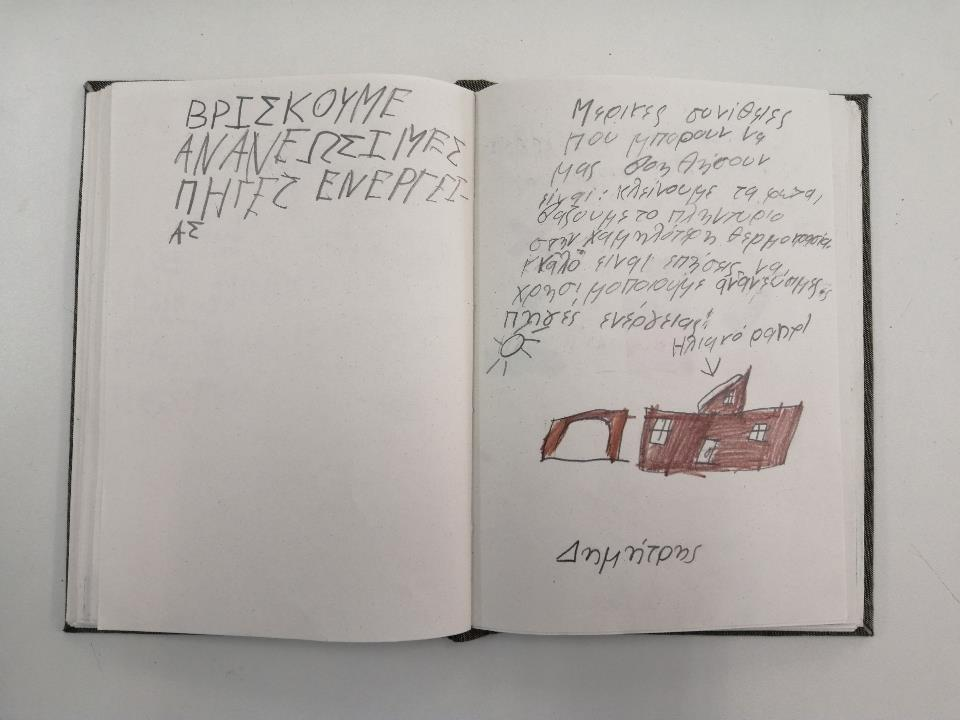 ΒΡΙΣΚΟΥΜΕ
ΑΝΑΝΕΩΣΙΜΕΣ
ΠΗΓΕΣ ΕΝΕΡΓΕΙ-
ΑΣ
Μερικες συνίθειες
που μπορουν να
μας βοηθήσουν
είναι: κλείνουμε τα φωτα,
βαζουμε το πληντυριο
στην χαμηλότερη θερμοκρασία.
καλό ειναι επίσεις να
χρησιμοποιούμε ανανεώσιμες
πηγές ενέργειας!
Ηλιακό
Δημήτρης